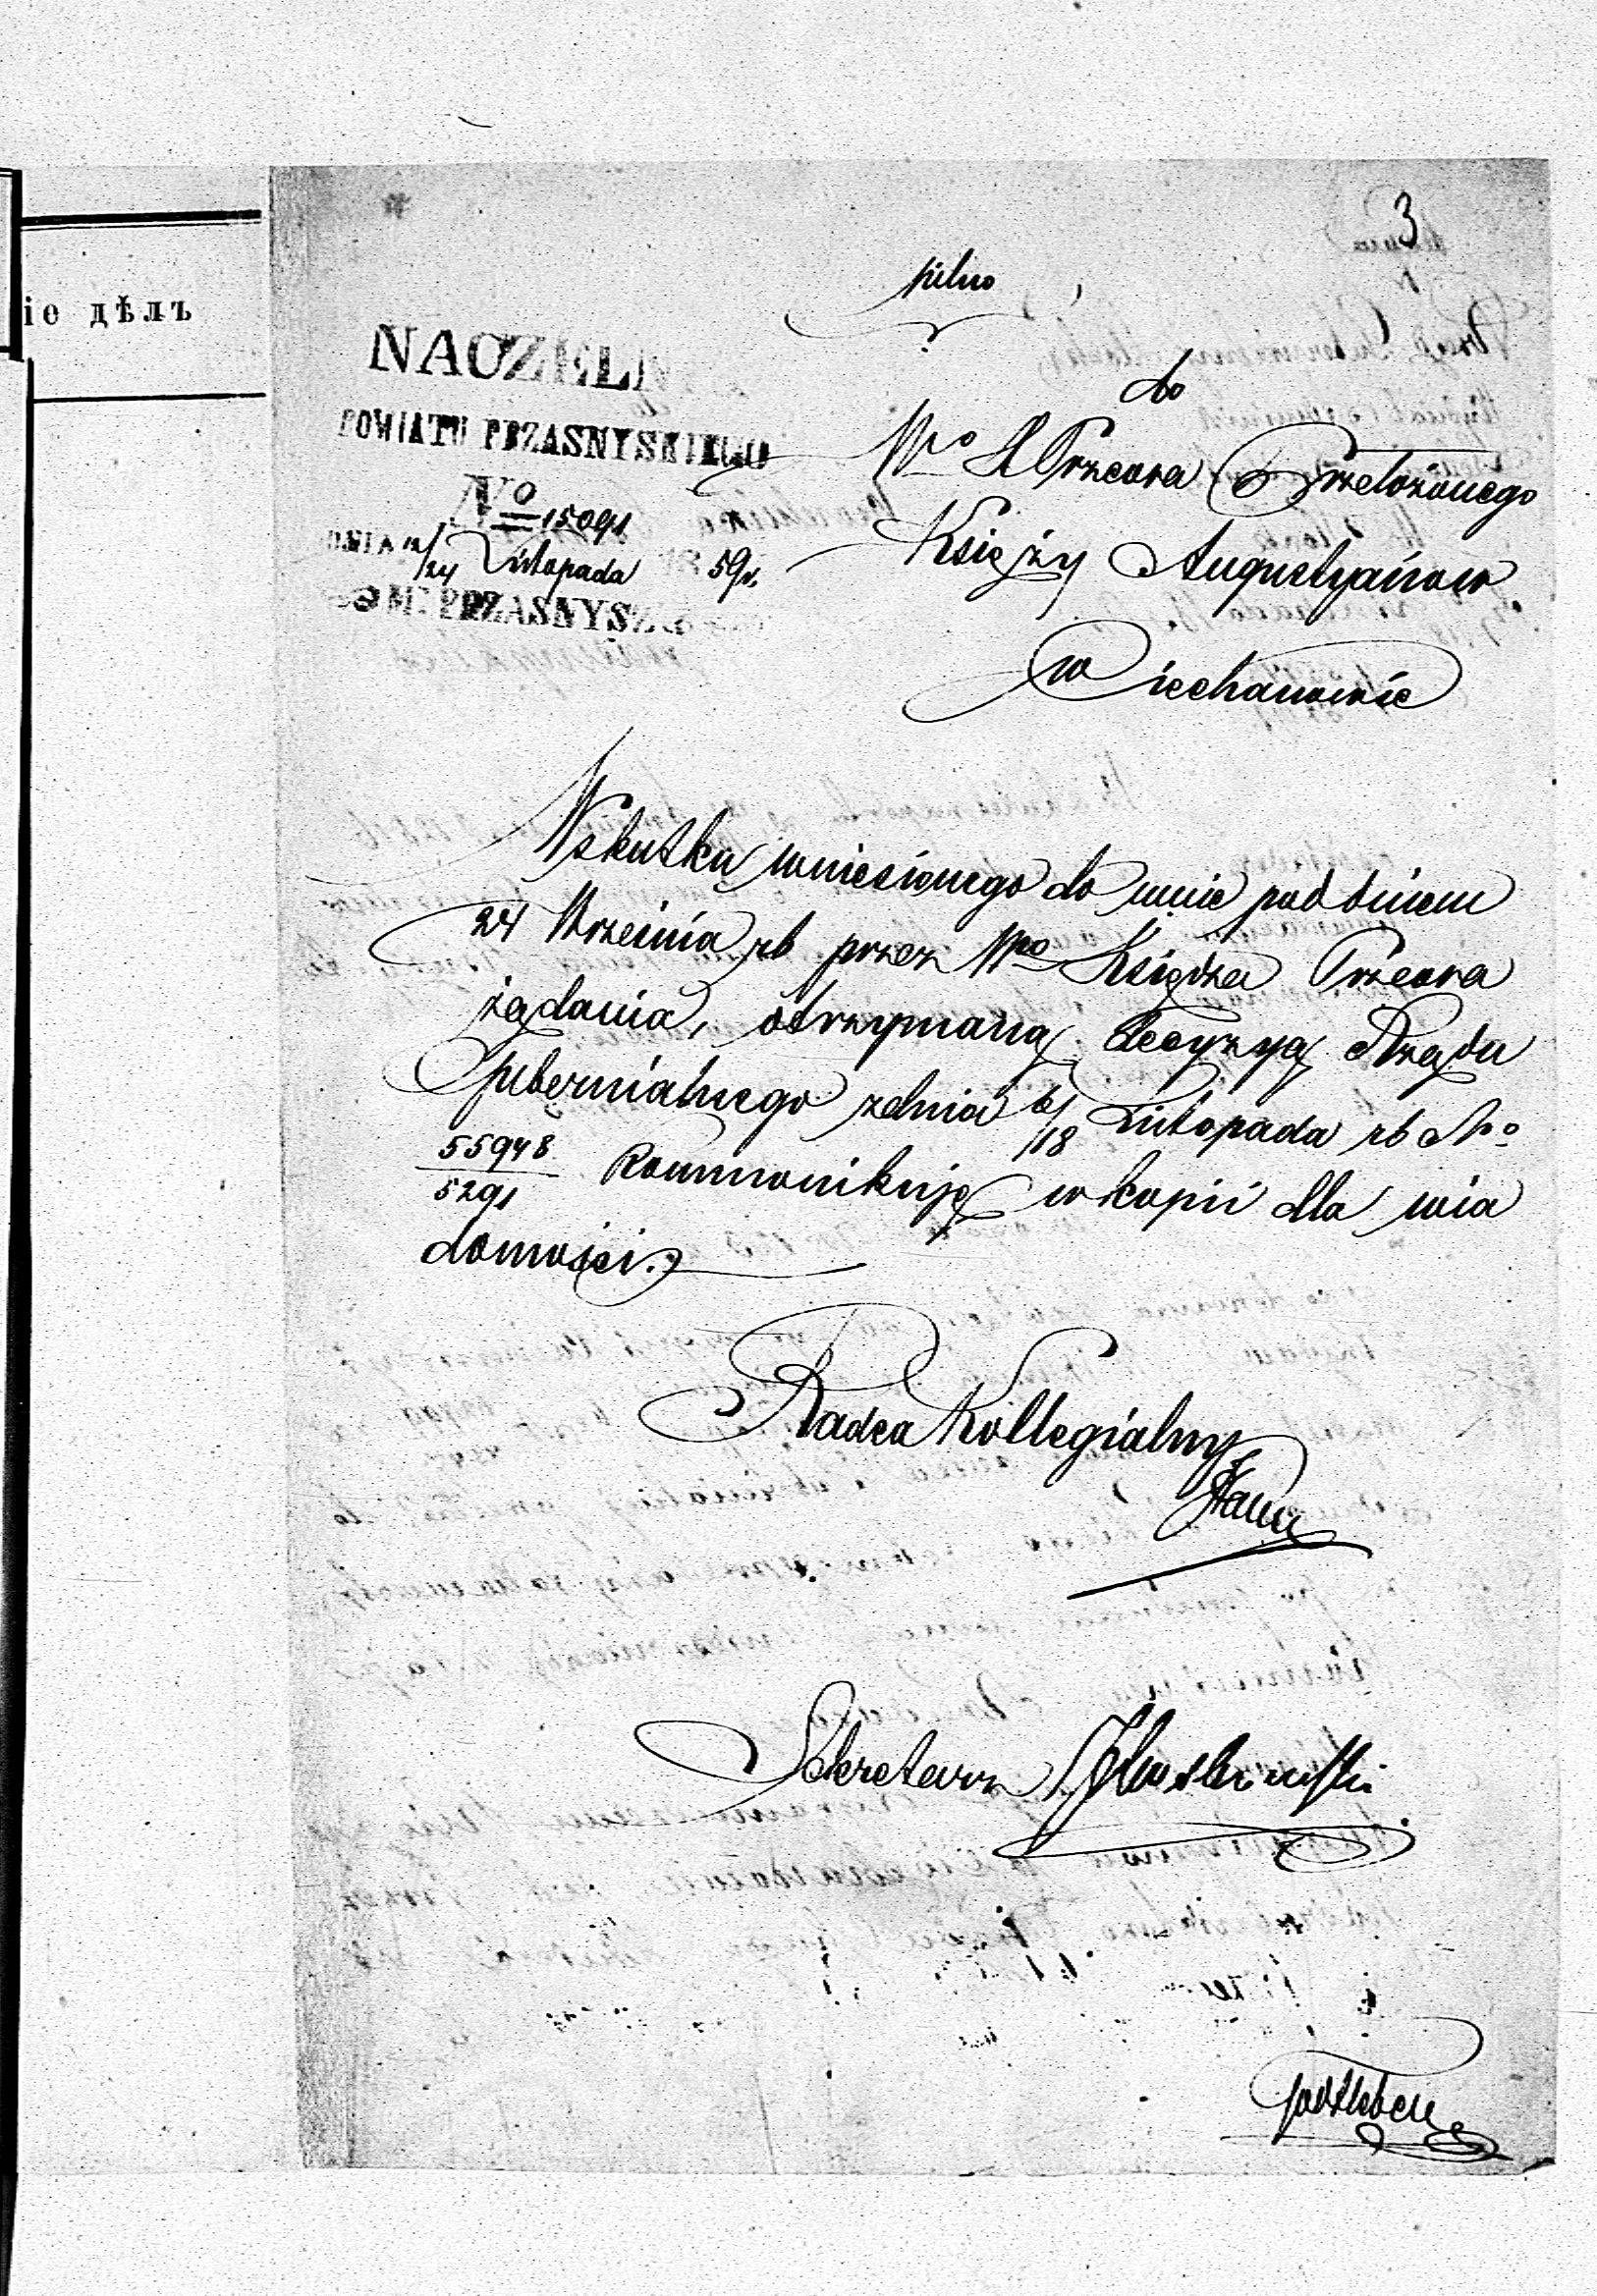 3
pilno
NACZELN
POWIATU PRZASNYSKIEGO
No 15091
DNIA 12/24 Listopada 59 r.
W M. PRZASNYSZU
іе дѣлъ
do
Wo X Przeora Przełożonego
Księży Augustyanów
w Ciechanowie
Wskutku wniesionego do mnie pod dniem
24 Września rb przez Wo Księdza Przeora
żądania, otrzymaną decyzyą Rządu
Gubernialnego z dnia 6/18 Listopada rb No
55948/5291 kommunikuję w kopii dla wia
domości.
Radca Kollegialny
Sekretarz